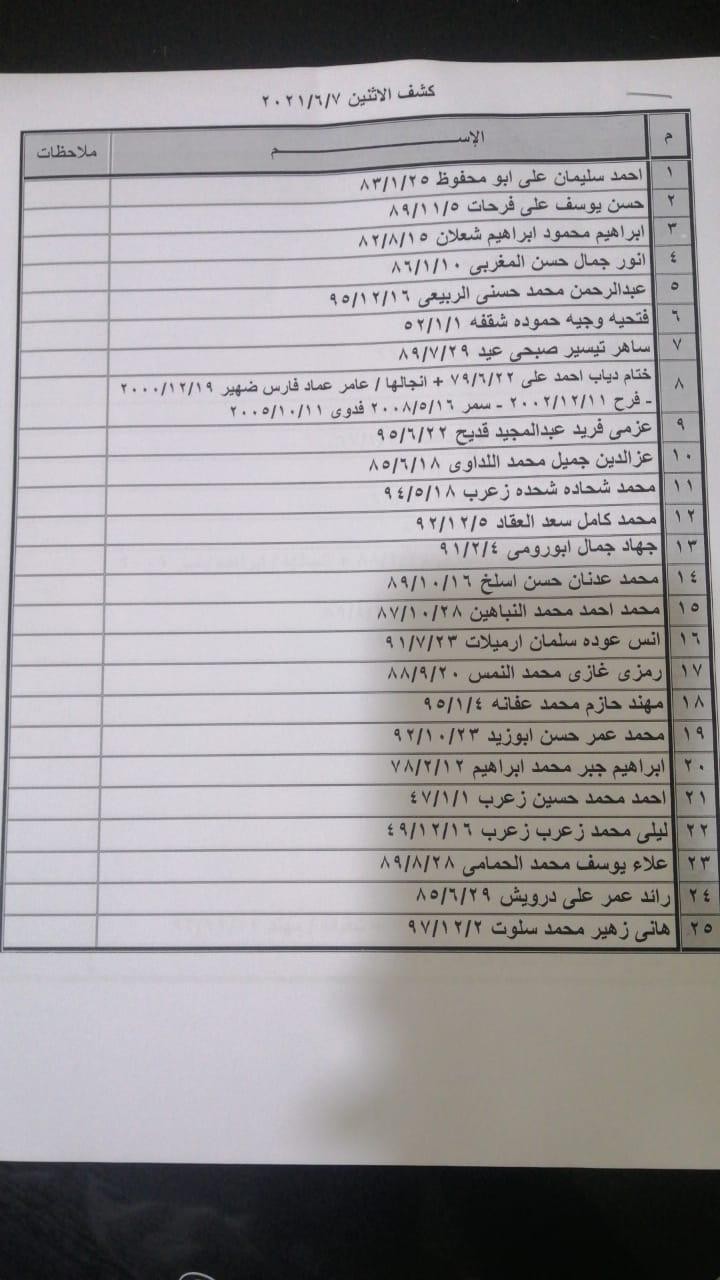 كشف الاثنين ٢٠٢١/٦/٧
م الإســـــــــــــم ملاحظات
١ احمد سليمان على ابو محفوظ ٨٣/١/٢٥
٢ حسن يوسف على فرحات ٨٩/١١/٥
٣ ابراهيم محمود ابراهيم شعلان ٨٢/٨/١٥
٤ انور جمال حسن المغربى ٨٦/١/١٠
٥ عبدالرحمن محمد حسنى الربيعى ٩٥/١٢/١٦
٦ فتحيه وجيه حموده شقفه ٥٢/١/١
٧ ساهر تيسير صبحى عيد ٨٩/٧/٢٩
٨ ختام دياب احمد على ٧٩/٦/٢٢ + انجالها / عامر عماد فارس ضهير ٢٠٠٠/١٢/١٩
- فرح ٢٠٠٢/١٢/١١ - سمر ٢٠٠٨/٥/١٦ فدوى ٢٠٠٥/١٠/١١
٩ عزمى فريد عبدالمجيد قديح ٩٥/٦/٢٢
١٠ عزالدين جميل محمد اللداوى ٨٥/٦/١٨
١١ محمد شحاده شحده زعرب ٩٤/٥/١٨
١٢ محمد كامل سعد العقاد ٩٢/١٢/٥
١٣ جهاد جمال ابورومى ٩١/٢/٤
١٤ محمد عدنان حسن اسلخ ٨٩/١٠/١٦
١٥ محمد احمد محمد النباهين ٨٧/١٠/٢٨
١٦ انس عوده سلمان ارميلات ٩١/٧/٢٣
١٧ رمزى غازى محمد النمس ٨٨/٩/٢٠
١٨ مهند حازم محمد عفانه ٩٥/١/٤
١٩ محمد عمر حسن ابوزيد ٩٢/١٠/٢٣
٢٠ ابراهيم جبر محمد ابراهيم ٧٨/٢/١٢
٢١ احمد محمد حسين زعرب ٤٧/١/١
٢٢ ليلى محمد زعرب زعرب ٤٩/١٢/١٦
٢٣ علاء يوسف محمد الحمامى ٨٩/٨/٢٨
٢٤ رائد عمر على درويش ٨٥/٦/٢٩
٢٥ هانى زهير محمد سلوت ٩٧/١٢/٢